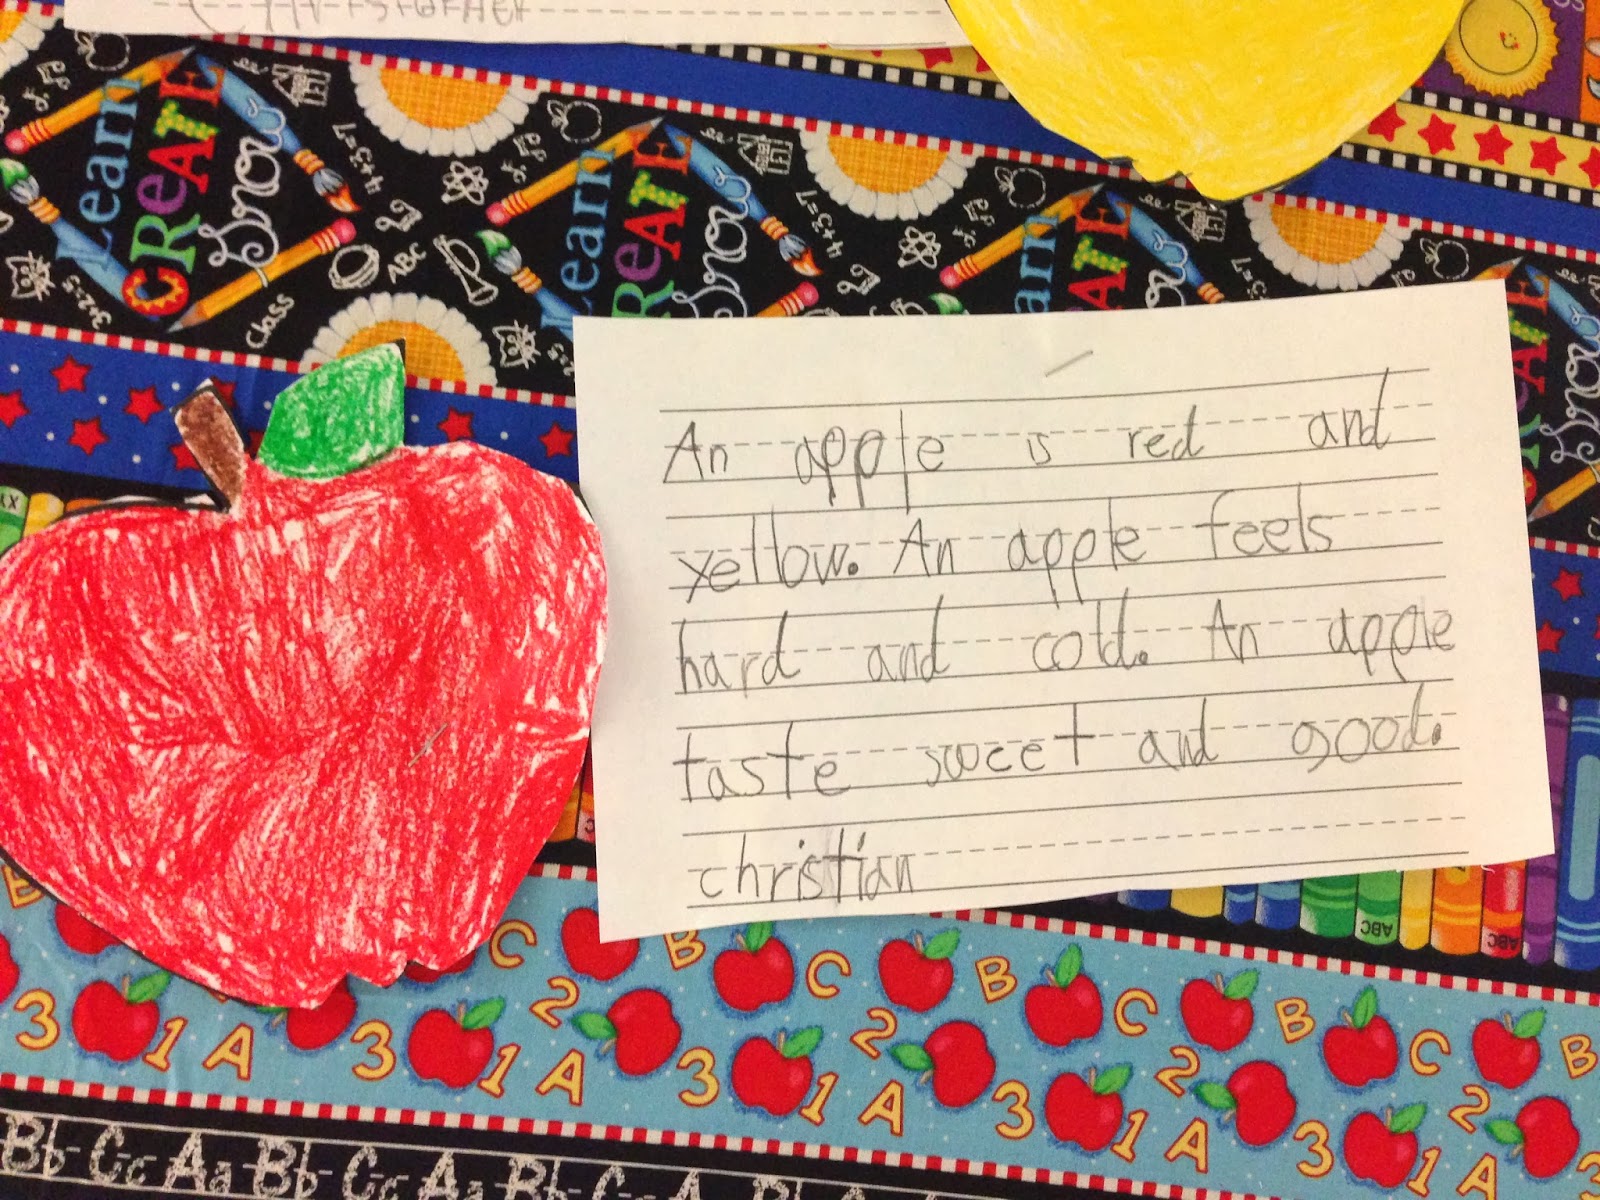 Learn CREATE Grow
4+3=7
ABC
Class
3+2=5
Learn CREATE Grow
4+3=7
Learn CREATE Grow
An apple is red and
yellow. An apple feels
hard and cold. An apple
taste sweet and good.
christian
ABC ABC
B C B C B C B
3 1 A 2 3 1 A 2 3 1 A 2 3 1 A 2 3 1 A
Bb Cc Aa Bb Cc Aa Bb Cc A